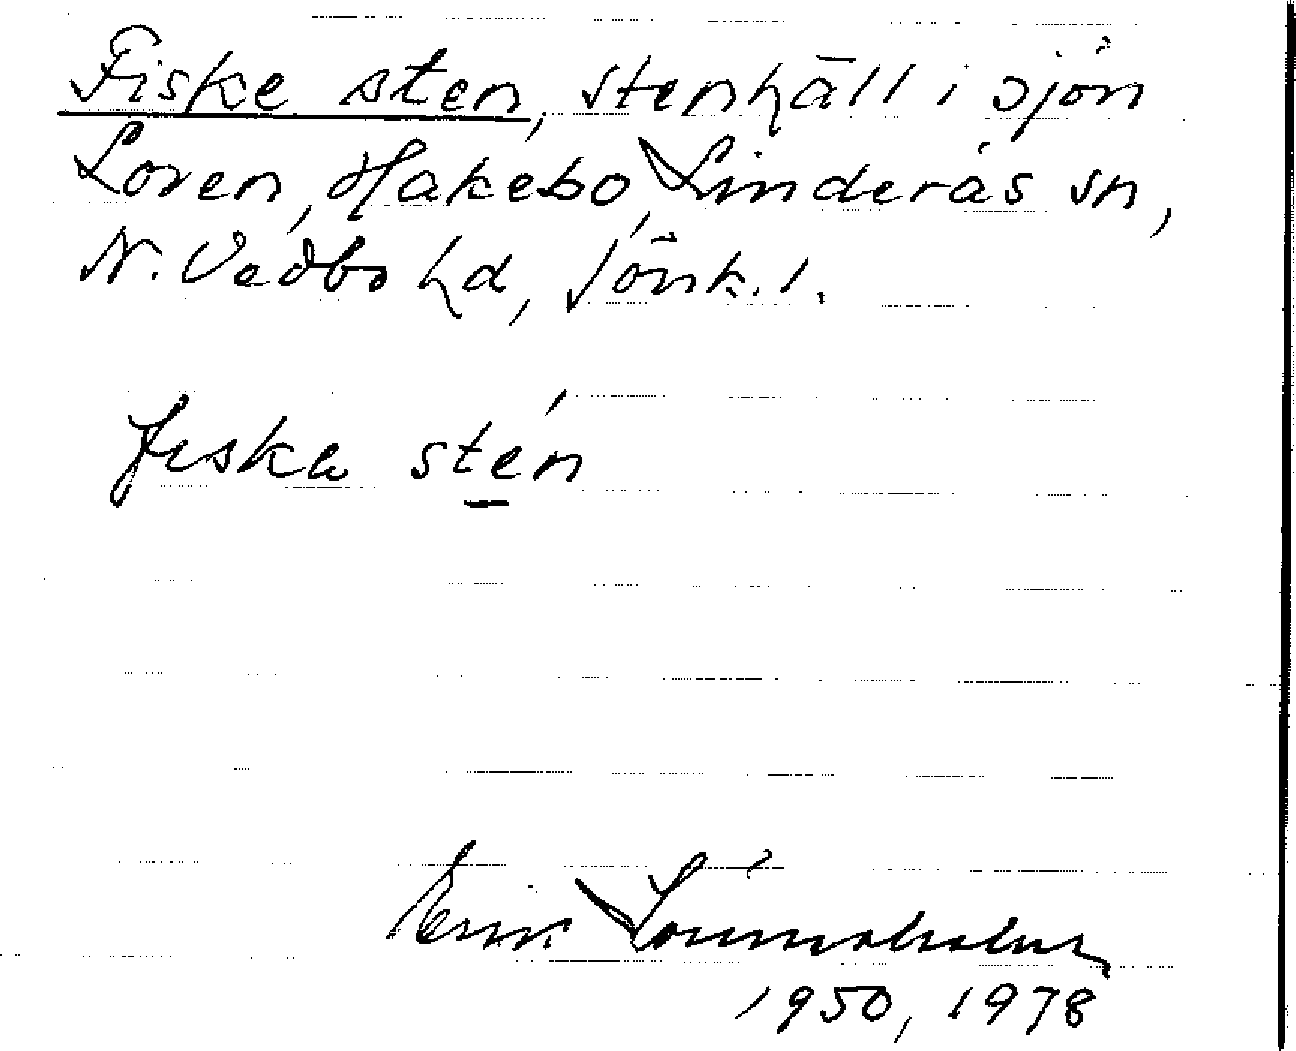 Fiske sten, stenhäll i sjön
Loren, Hakebo, Linderås sn,
N. Vedbo hd, Jönk. l.
fiska stén
Erik
1950, 1978